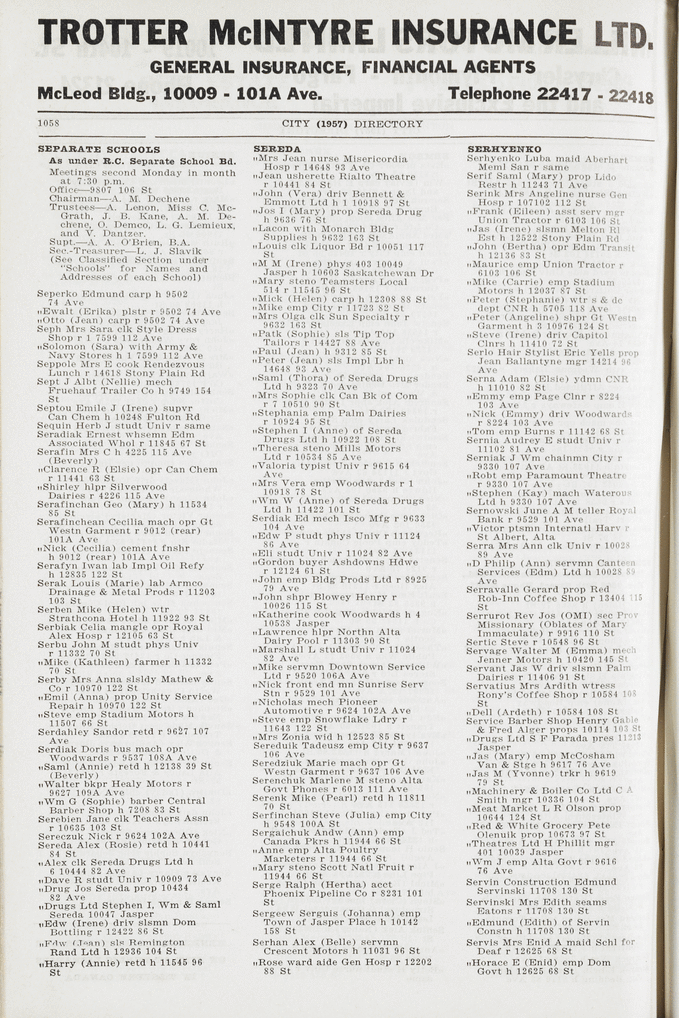 TROTTER McINTYRE INSURANCE LTD.
GENERAL INSURANCE, FINANCIAL AGENTS
McLeod Bldg., 10009 - 101A Ave. Telephone 22417 - 22418
1058 CITY (1957) DIRECTORY
SEPARATE SCHOOLS
As under R.C. Separate School Bd.
Meetings second Monday in month
at 7:30 p.m.
Office—9807 106 St
Chairman—A. M. Dechene
Trustees—A. Lenon, Miss C. Mc-
Grath, J. B. Kane, A. M. De-
chene, O. Demco, L. G. Lemieux,
and V. Dantzer.
Supt.—A. A. O'Brien, B.A.
Sec.-Treasurer—L. J. Slavik
(See Classified Section under
"Schools" for Names and
Addresses of each School)
Seperko Edmund carp h 9502
74 Ave
„Ewalt (Erika) plstr r 9502 74 Ave
„Otto (Jean) carp r 9502 74 Ave
Seph Mrs Sara clk Style Dress
Shop r 1 7599 112 Ave
„Solomon (Sara) with Army &
Navy Stores h 1 7599 112 Ave
Seppole Mrs E cook Rendezvous
Lunch r 14618 Stony Plain Rd
Sept J Albt (Nellie) mech
Fruehauf Trailer Co h 9749 154
St
Septou Emile J (Irene) supvr
Can Chem h 10248 Fulton Rd
Sequin Herb J studt Univ r same
Seradiak Ernest whsemn Edm
Associated Whol r 11845 67 St
Serafin Mrs C h 4225 115 Ave
(Beverly)
„Clarence R (Elsie) opr Can Chem
r 11441 63 St
„Shirley hlpr Silverwood
Dairies r 4226 115 Ave
Serafinchan Geo (Mary) h 11534
85 St
Serafinchean Cecilia mach opr Gt
Westn Garment r 9012 (rear)
101A Ave
„Nick (Cecilia) cement fnshr
h 9012 (rear) 101A Ave
Serafyn Iwan lab Impl Oil Refy
h 12835 122 St
Serak Louis (Marie) lab Armco
Drainage & Metal Prods r 11203
103 St
Serben Mike (Helen) wtr
Strathcona Hotel h 11922 93 St
Serbiak Cella mangle opr Royal
Alex Hosp r 12105 63 St
Serbu John M studt phys Univ
r 11332 70 St
„Mike (Kathleen) farmer h 11332
70 St
Serby Mrs Anna slsldy Mathew &
Co r 10970 122 St
„Emil (Anna) prop Unity Service
Repair h 10970 122 St
„Steve emp Stadium Motors h
11507 66 St
Serdahley Sandor retd r 9627 107
Ave
Serdiak Doris bus mach opr
Woodwards r 9537 108A Ave
„Saml (Annie) retd h 12138 39 St
(Beverly)
„Walter bkpr Healy Motors r
9627 109A Ave
„Wm G (Sophie) barber Central
Barber Shop h 7208 83 St
Serebien Jane clk Teachers Assn
r 10635 103 St
Sereczuk Nick r 9624 102A Ave
Sereda Alex (Rosie) retd h 10441
84 St
„Alex clk Sereda Drugs Ltd h
6 10444 82 Ave
„Dave R studt Univ r 10909 73 Ave
„Drug Jos Sereda prop 10434
82 Ave
„Drugs Ltd Stephen I, Wm & Saml
Sereda 10047 Jasper
„Edw (Irene) driv slsmn Dom
Bottling r 12422 86 St
„Edw (Jean) sls Remington
Rand Ltd h 12936 104 St
„Harry (Annie) retd h 11545 96
St
SEREDA
„Mrs Jean nurse Misericordia
Hosp r 14648 93 Ave
„Jean usherette Rialto Theatre
r 10441 84 St
„John (Vera) driv Bennett &
Emmott Ltd h 1 10918 97 St
„Jos I (Mary) prop Sereda Drug
h 9636 76 St
„Lacon with Monarch Bldg
Supplies h 9632 163 St
„Louis clk Liquor Bd r 10051 117
St
„M M (Irene) phys 403 10049
Jasper h 10603 Saskatchewan Dr
„Mary steno Teamsters Local
514 r 11545 96 St
„Mick (Helen) carp h 12308 88 St
„Mike emp City r 11723 82 St
„Mrs Olga clk Sun Specialty r
9632 163 St
„Patk (Sophie) sls Tip Top
Tailors r 14427 88 Ave
„Paul (Jean) h 9312 85 St
„Peter (Jean) sls Impl Lbr h
14648 93 Ave
„Saml (Thora) of Sereda Drugs
Ltd h 9323 70 Ave
„Mrs Sophie clk Can Bk of Com
r 7 10510 90 St
„Stephania emp Palm Dairies
r 10924 95 St
„Stephen I (Anne) of Sereda
Drugs Ltd h 10922 108 St
„Theresa steno Mills Motors
Ltd r 10534 85 Ave
„Valoria typist Univ r 9615 64
Ave
„Mrs Vera emp Woodwards r 1
10918 78 St
„Wm W (Anne) of Sereda Drugs
Ltd h 11422 101 St
Serdiak Ed mech Isco Mfg r 9633
104 Ave
„Edw P studt phys Univ r 11124
86 Ave
„Eli studt Univ r 11024 82 Ave
„Gordon buyer Ashdowns Hdwe
r 12124 61 St
„John emp Bldg Prods Ltd r 8925
79 Ave
„John shpr Blowey Henry r
10026 115 St
„Katherine cook Woodwards h 4
10538 Jasper
„Lawrence hlpr Northn Alta
Dairy Pool r 11303 90 St
„Marshall L studt Univ r 11024
82 Ave
„Mike servmn Downtown Service
Ltd r 9520 106A Ave
„Nick front end mn Sunrise Serv
Stn r 9529 101 Ave
„Nicholas mech Pioneer
Automotive r 9624 102A Ave
„Steve emp Snowflake Ldry r
11643 122 St
„Mrs Zonia wid h 12523 85 St
Sereduik Tadeusz emp City r 9637
106 Ave
Seredziuk Marie mach opr Gt
Westn Garment r 9637 106 Ave
Serenchuk Marlene M steno Alta
Govt Phones r 6013 111 Ave
Serenk Mike (Pearl) retd h 11811
70 St
Serfinchan Steve (Julia) emp City
h 9548 100A St
Sergaichuk Andw (Ann) emp
Canada Pkrs h 11944 66 St
„Anne emp Alta Poultry
Marketers r 11944 66 St
„Mary steno Scott Natl Fruit r
11944 66 St
Serge Ralph (Hertha) acct
Phoenix Pipeline Co r 8231 101
St
Sergeew Serguis (Johanna) emp
Town of Jasper Place h 10142
158 St
Serhan Alex (Belle) servmn
Crescent Motors h 11031 96 St
„Rose ward aide Gen Hosp r 12202
88 St
SERHYENKO
Serhyenko Luba maid Aberhart
Meml San r same
Serif Saml (Mary) prop Lido
Restr h 11243 71 Ave
Serink Mrs Angeline nurse Gen
Hosp r 107102 112 St
„Frank (Eileen) asst serv mgr
Union Tractor r 6103 106 St
„Jas (Irene) slsmn Melton Rl
Est h 12522 Stony Plain Rd
„John (Bertha) opr Edm Transit
h 12136 83 St
„Maurice emp Union Tractor r
6103 106 St
„Mike (Carrie) emp Stadium
Motors h 12037 87 St
„Peter (Stephanie) wtr s & dc
dept CNR h 5705 118 Ave
„Peter (Angeline) shpr Gt Westn
Garment h 3 10976 124 St
„Steve (Irene) driv Capitol
Clnrs h 11410 72 St
Serlo Hair Stylist Eric Yells prop
Jean Ballantyne mgr 14214 96
Ave
Serna Adam (Elsie) ydmn CNR
h 11010 82 St
„Emmy emp Page Clnr r 8224
103 Ave
„Nick (Emmy) driv Woodwards
r 8224 103 Ave
„Tom emp Burns r 11142 68 St
Sernia Audrey E studt Univ r
11102 81 Ave
Serniak J Wm chainmn City r
9330 107 Ave
„Robt emp Paramount Theatre
r 9330 107 Ave
„Stephen (Kay) mach Waterous
Ltd h 9330 107 Ave
Sernowski June A M teller Royal
Bank r 9529 101 Ave
„Victor ptsmn Internatl Harv r
St Albert, Alta
Serra Mrs Ann clk Univ r 10028
89 Ave
„D Philip (Ann) servmn Canteen
Services (Edm) Ltd h 10028 89
Ave
Serravalle Gerard prop Red
Rob-Inn Coffee Shop r 13404 115
St
Serrurot Rev Jos (OMI) sec Prov
Missionary (Oblates of Mary
Immaculate) r 9916 110 St
Sertic Steve r 10548 96 St
Servage Walter M (Emma) mech
Jenner Motors h 10420 145 St
Servant Jas W driv slsmn Palm
Dairies r 11406 91 St
Servatius Mrs Ardith wtress
Rony's Coffee Shop r 10584 108
St
„Dell (Ardeth) r 10584 108 St
Service Barber Shop Henry Gable
& Fred Alger props 10114 103 St
„Drugs Ltd S F Parada pres 11213
Jasper
„Jas (Mary) emp McCosham
Van & Stge h 9617 76 Ave
„Jas M (Yvonne) trkr h 9619
79 St
„Machinery & Boiler Co Ltd C A
Smith mgr 10336 104 St
„Meat Market L R Olson prop
10644 124 St
„Red & White Grocery Pete
Olenuik prop 10673 97 St
„Theatres Ltd H Phillit mgr
401 10039 Jasper
„Wm J emp Alta Govt r 9616
76 Ave
Servin Construction Edmund
Servinski 11708 130 St
Servinski Mrs Edith seams
Eatons r 11708 130 St
„Edmund (Edith) of Servin
Constn h 11708 130 St
Servis Mrs Enid A maid Schl for
Deaf r 12625 68 St
„Horace E (Enid) emp Dom
Govt h 12625 68 St